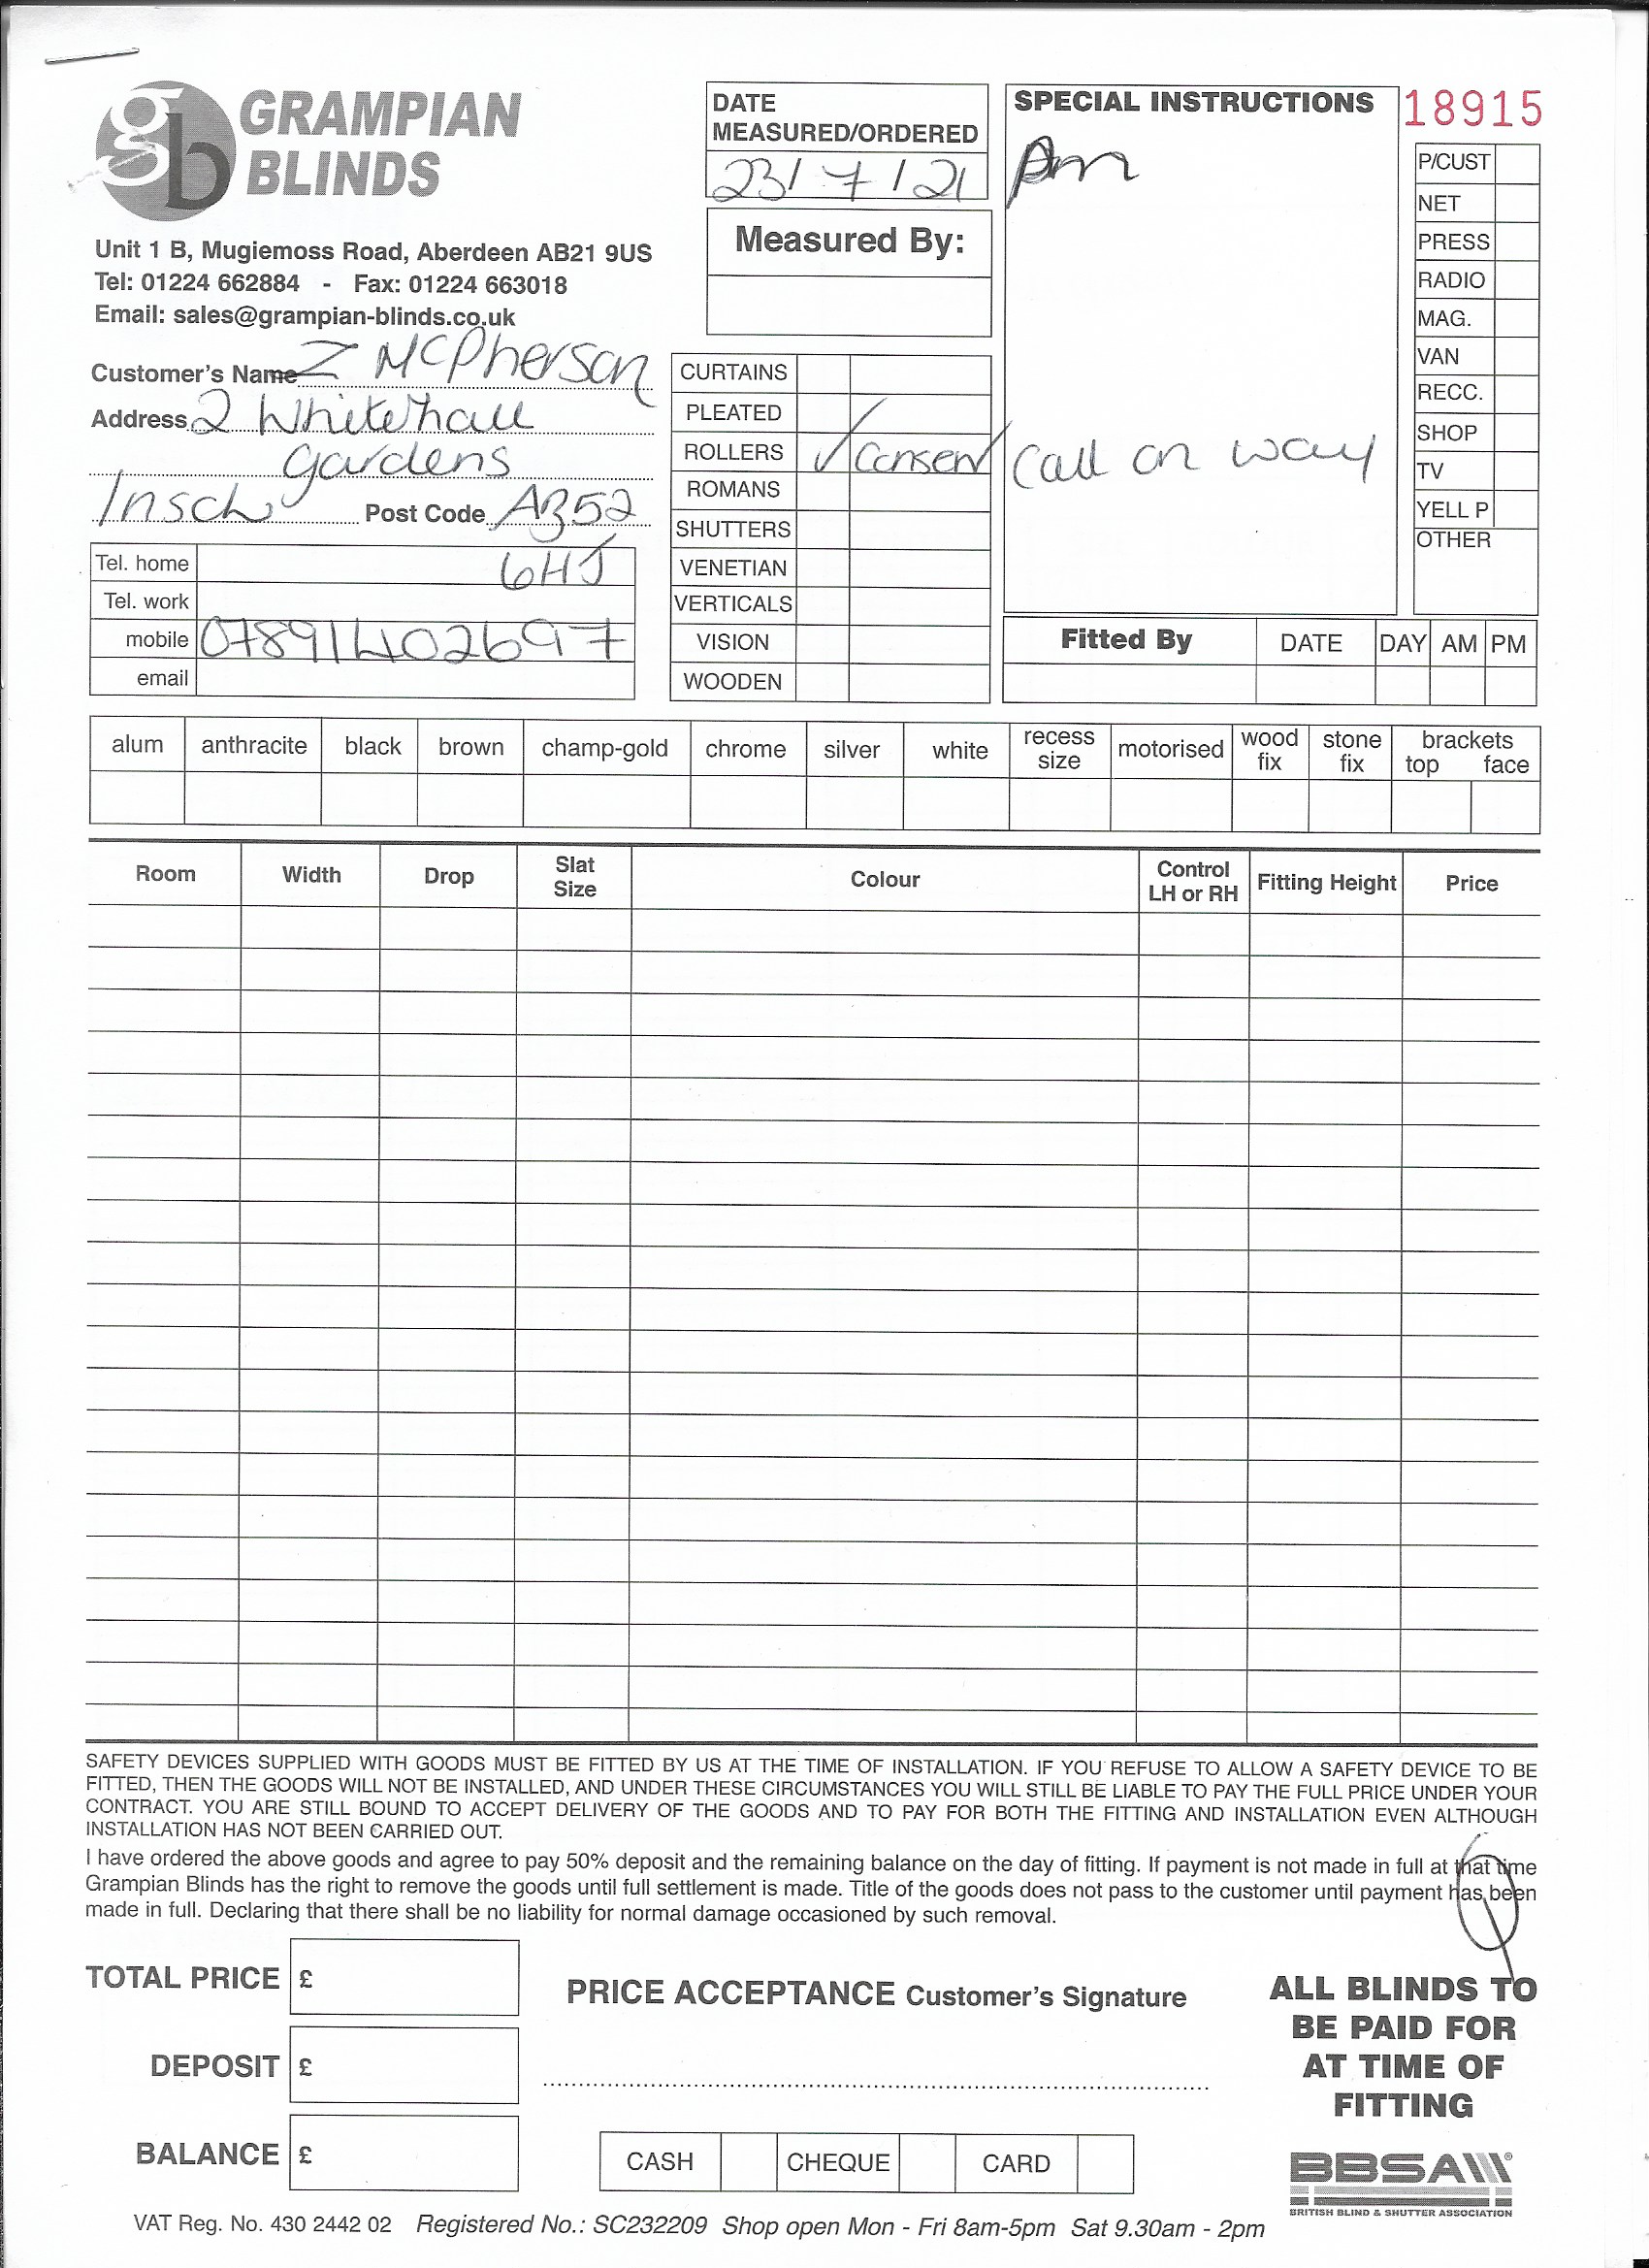 gb GRAMPIAN
BLINDS
Unit 1 B, Mugiemoss Road, Aberdeen AB21 9US
Tel: 01224 662884 - Fax: 01224 663018
Email: sales@grampian-blinds.co.uk
Customer's Name Z McPherson
Address 2 Whitehall
gardens
Insch Post Code AB52
6HJ
Tel. home
Tel. work
mobile 07891402697
email
DATE
MEASURED/ORDERED
23/7/21
Measured By:
CURTAINS
PLEATED
ROLLERS ✓ Conserv
ROMANS
SHUTTERS
VENETIAN
VERTICALS
VISION
WOODEN
SPECIAL INSTRUCTIONS
Call on way
18915
P/CUST
NET
PRESS
RADIO
MAG.
VAN
RECC.
SHOP
TV
YELL P
OTHER
Fitted By DATE DAY AM PM
alum anthracite black brown champ-gold chrome silver white recess size motorised wood fix stone fix brackets top face
Room Width Drop Slat Size Colour Control LH or RH Fitting Height Price
SAFETY DEVICES SUPPLIED WITH GOODS MUST BE FITTED BY US AT THE TIME OF INSTALLATION. IF YOU REFUSE TO ALLOW A SAFETY DEVICE TO BE
FITTED, THEN THE GOODS WILL NOT BE INSTALLED, AND UNDER THESE CIRCUMSTANCES YOU WILL STILL BE LIABLE TO PAY THE FULL PRICE UNDER YOUR
CONTRACT. YOU ARE STILL BOUND TO ACCEPT DELIVERY OF THE GOODS AND TO PAY FOR BOTH THE FITTING AND INSTALLATION EVEN ALTHOUGH
INSTALLATION HAS NOT BEEN CARRIED OUT.
I have ordered the above goods and agree to pay 50% deposit and the remaining balance on the day of fitting. If payment is not made in full at that time
Grampian Blinds has the right to remove the goods until full settlement is made. Title of the goods does not pass to the customer until payment has been
made in full. Declaring that there shall be no liability for normal damage occasioned by such removal.
TOTAL PRICE £
DEPOSIT £
BALANCE £
PRICE ACCEPTANCE Customer's Signature
CASH CHEQUE CARD
ALL BLINDS TO
BE PAID FOR
AT TIME OF
FITTING
BBSA
BRITISH BLIND & SHUTTER ASSOCIATION
VAT Reg. No. 430 2442 02 Registered No.: SC232209 Shop open Mon - Fri 8am-5pm Sat 9.30am - 2pm